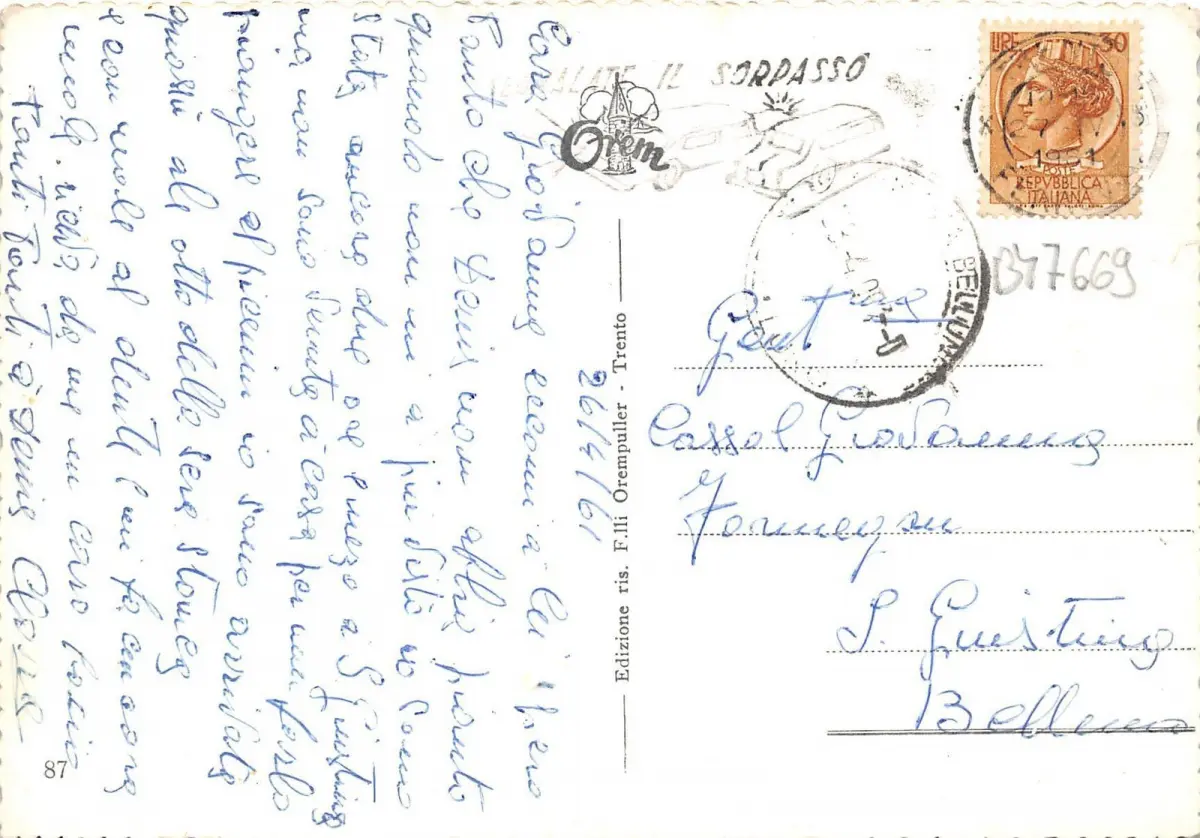 26/4/61
Cara Giovanna eccomi a lei spero
tanto che Denis non abbia pianto
quando non mi a piu visto io sono
stata ancora due ore e mezo a S. Giustina
ma non sono venuta a casa per non farlo
piangere el piccinin io sono arrivata
quassu ale otto della sera stanca
e con male al dente l'unita ancora
da me un
Tanti Tanti a Denis Clara
87
Edizione ris. F.lli Orempuller - Trento
Orem
SEGNALATE IL SORPASSO
LIRE 30
POSTE
REPVBBLICA
ITALIANA
BELLUNO
B47669
Gent
Cassol Giovanna
Formegan
S. Giustina
Belluno